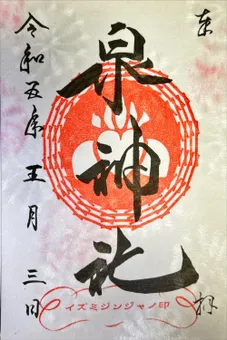 奉拝
泉神社
令和五年五月三日
イズミジンジャノ印